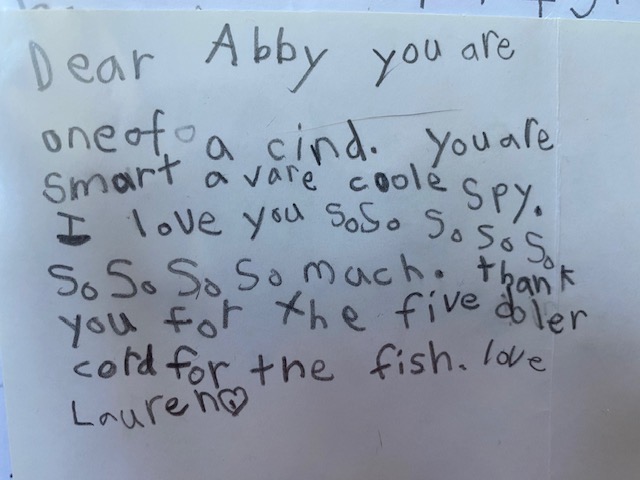 Dear Abby you are
one of a cind. you are
smart a vare coole spy.
I love you SoSo So So So
So So So So mach. thank
you for the five doler
cord for the fish. love
Lauren♡